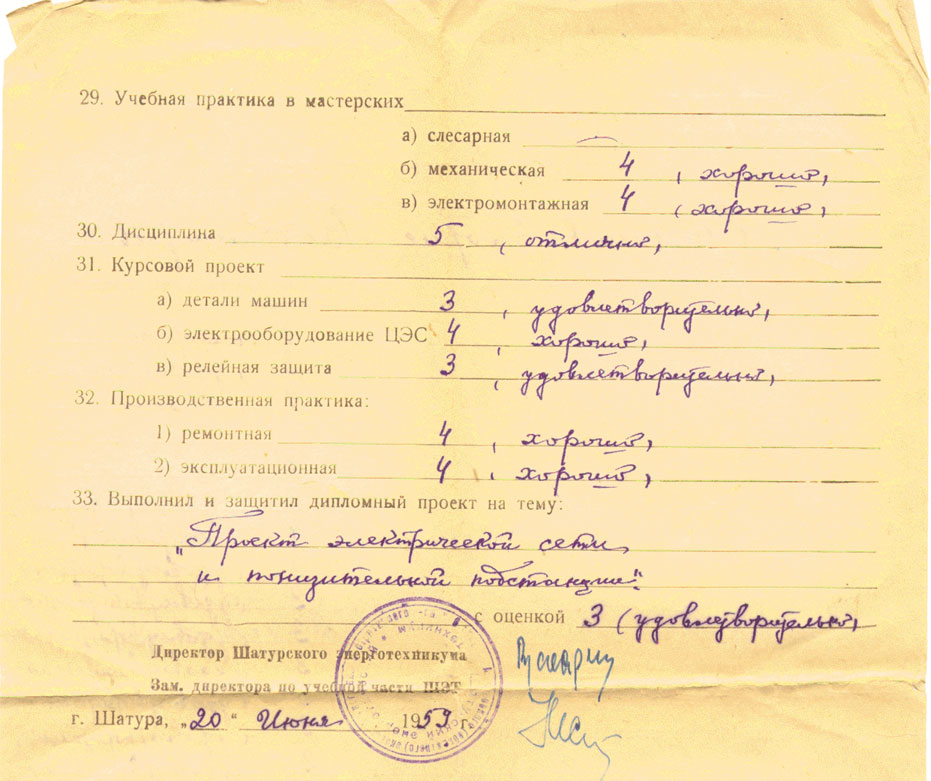 29. Учебная практика в мастерских
а) слесарная —
б) механическая 4 , хорошо,
в) электромонтажная 4 , хорошо,
30. Дисциплина 5 , отлично,
31. Курсовой проект
а) детали машин 3 , удовлетворительно,
б) электрооборудование ЦЭС 4 , хорошо,
в) релейная защита 3 , удовлетворительно,
32. Производственная практика:
1) ремонтная 4 , хорошо,
2) эксплуатационная 4 , хорошо,
33. Выполнил и защитил дипломный проект на тему:
„Проект электрической сети
и понизительной подстанции"
с оценкой 3 (удовлетворительно,
Директор Шатурского энерготехникума
Зам. директора по учебной части ШЭТ
г. Шатура, „20" Июня 1959 г.